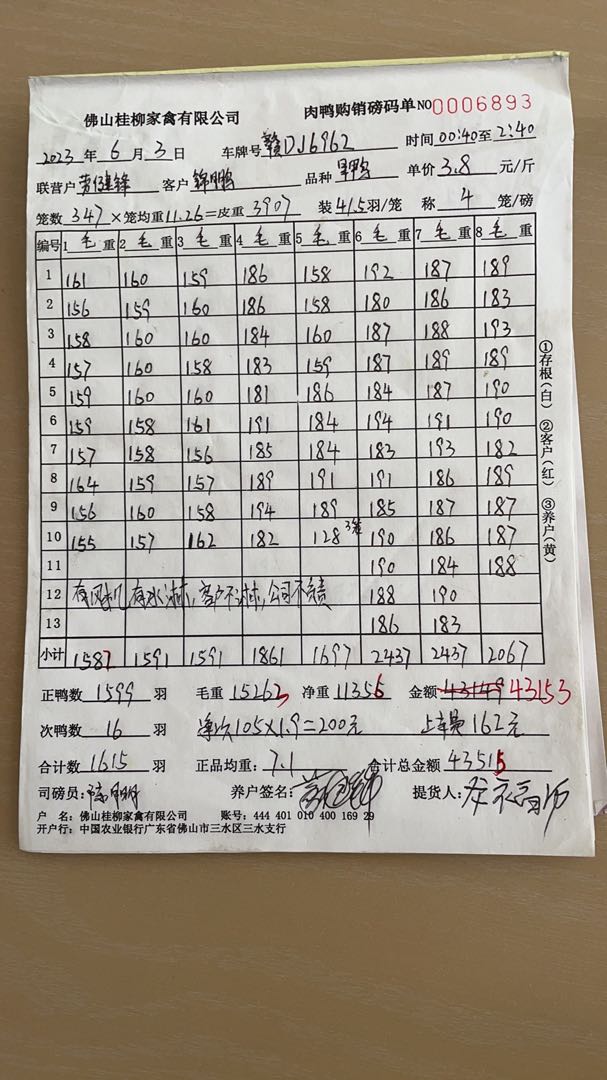 佛山桂柳家禽有限公司 肉鸭购销磅码单 NO 0006893
2023 年 6 月 3 日 车牌号 赣DJ6962 时间 00:40 至 2:40
联营户 客户 锦鹏 品种 单价 3.8 元/斤
笼数 347 ×笼均重 11.26 =皮重 3907 装 4.5 羽/笼 称 4 笼/磅
编号 1 毛 重 2 毛 重 3 毛 重 4 毛 重 5 毛 重 6 毛 重 7 毛 重 8 毛 重
1 161 160 159 186 158 192 187 189
2 156 159 160 186 158 180 186 183
3 158 160 160 184 160 187 188 193
4 157 160 158 183 159 187 189 189
5 159 160 160 181 186 184 187 190
6 159 158 161 191 184 194 191 190
7 157 158 156 185 184 183 193 182
8 164 159 157 189 191 191 186 189
9 156 160 158 194 189 185 187 187
10 155 157 162 182 128 3笼 190 186 187
11 190 184 188
12 有风机,有水淋,客户不淋,公司不负责 188 190
13 186 183
小计 1582 1591 1591 1861 1697 2437 2437 2067
正鸭数 1599 羽 毛重 15263 净重 11356 金额 43149 43153
次鸭数 16 羽 105×1.9=200元 上车费162元
合计数 1615 羽 正品均重: 7.1 合计总金额 43515
司磅员: 养户签名: 提货人:
户 名: 佛山桂柳家禽有限公司 账号: 444 401 010 400 169 29
开户行: 中国农业银行广东省佛山市三水区三水支行
①存根(白) ②客户(红) ③养户(黄)